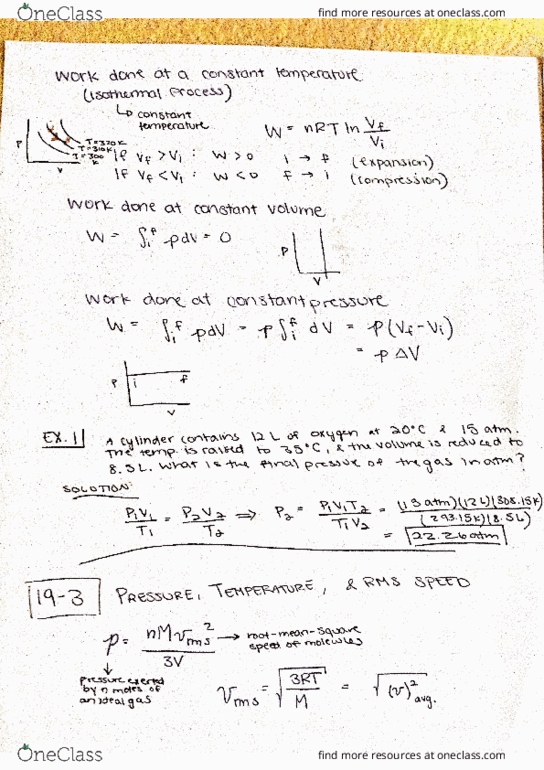 OneClass
find more resources at oneclass.com
work done at a constant temperature
(Isothermal Process)
↳ constant temperature
W = nRT ln Vf/Vi
P
T=320K
T=310K
T=300K
V
If Vf > Vi : W > 0 i → f (expansion)
If Vf < Vi : W < 0 f → i (compression)
Work done at constant volume
W = ∫if pdV = 0
P
V
Work done at constant pressure
W = ∫if pdV = p∫if dV = p(Vf-Vi)
= pΔV
P i f
V
EX. 1 A cylinder contains 12 L of oxygen at 20°C & 15 atm.
The temp. is raised to 35°C, & the volume is reduced to
8.5L. What is the final pressure of the gas in atm?
SOLUTION:
P1V1/T1 = P2V2/T2 ⇒ P2 = P1V1T2/T1V2 = (15 atm)(12L)(308.15K)/(293.15K)(8.5L)
= 22.26 atm
19-3 PRESSURE, TEMPERATURE, & RMS SPEED
p = nMvrms²/3V → root-mean-square speed of molecules
pressure exerted
by n moles of
an ideal gas
vrms = √3RT/M = √(v)² avg.
OneClass
find more resources at oneclass.com